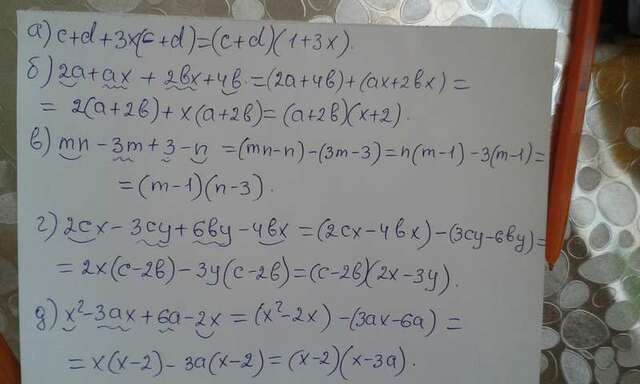 а) c+d+3x(c+d)=(c+d)(1+3x).
б) 2a+ax+2bx+4b=(2a+4b)+(ax+2bx)=
= 2(a+2b)+x(a+2b)=(a+2b)(x+2).
в) mn-3m+3-n=(mn-n)-(3m-3)=n(m-1)-3(m-1)=
=(m-1)(n-3).
г) 2cx-3cy+6by-4bx=(2cx-4bx)-(3cy-6by)=
=2x(c-2b)-3y(c-2b)=(c-2b)(2x-3y).
д) x²-3ax+6a-2x=(x²-2x)-(3ax-6a)=
=x(x-2)-3a(x-2)=(x-2)(x-3a).